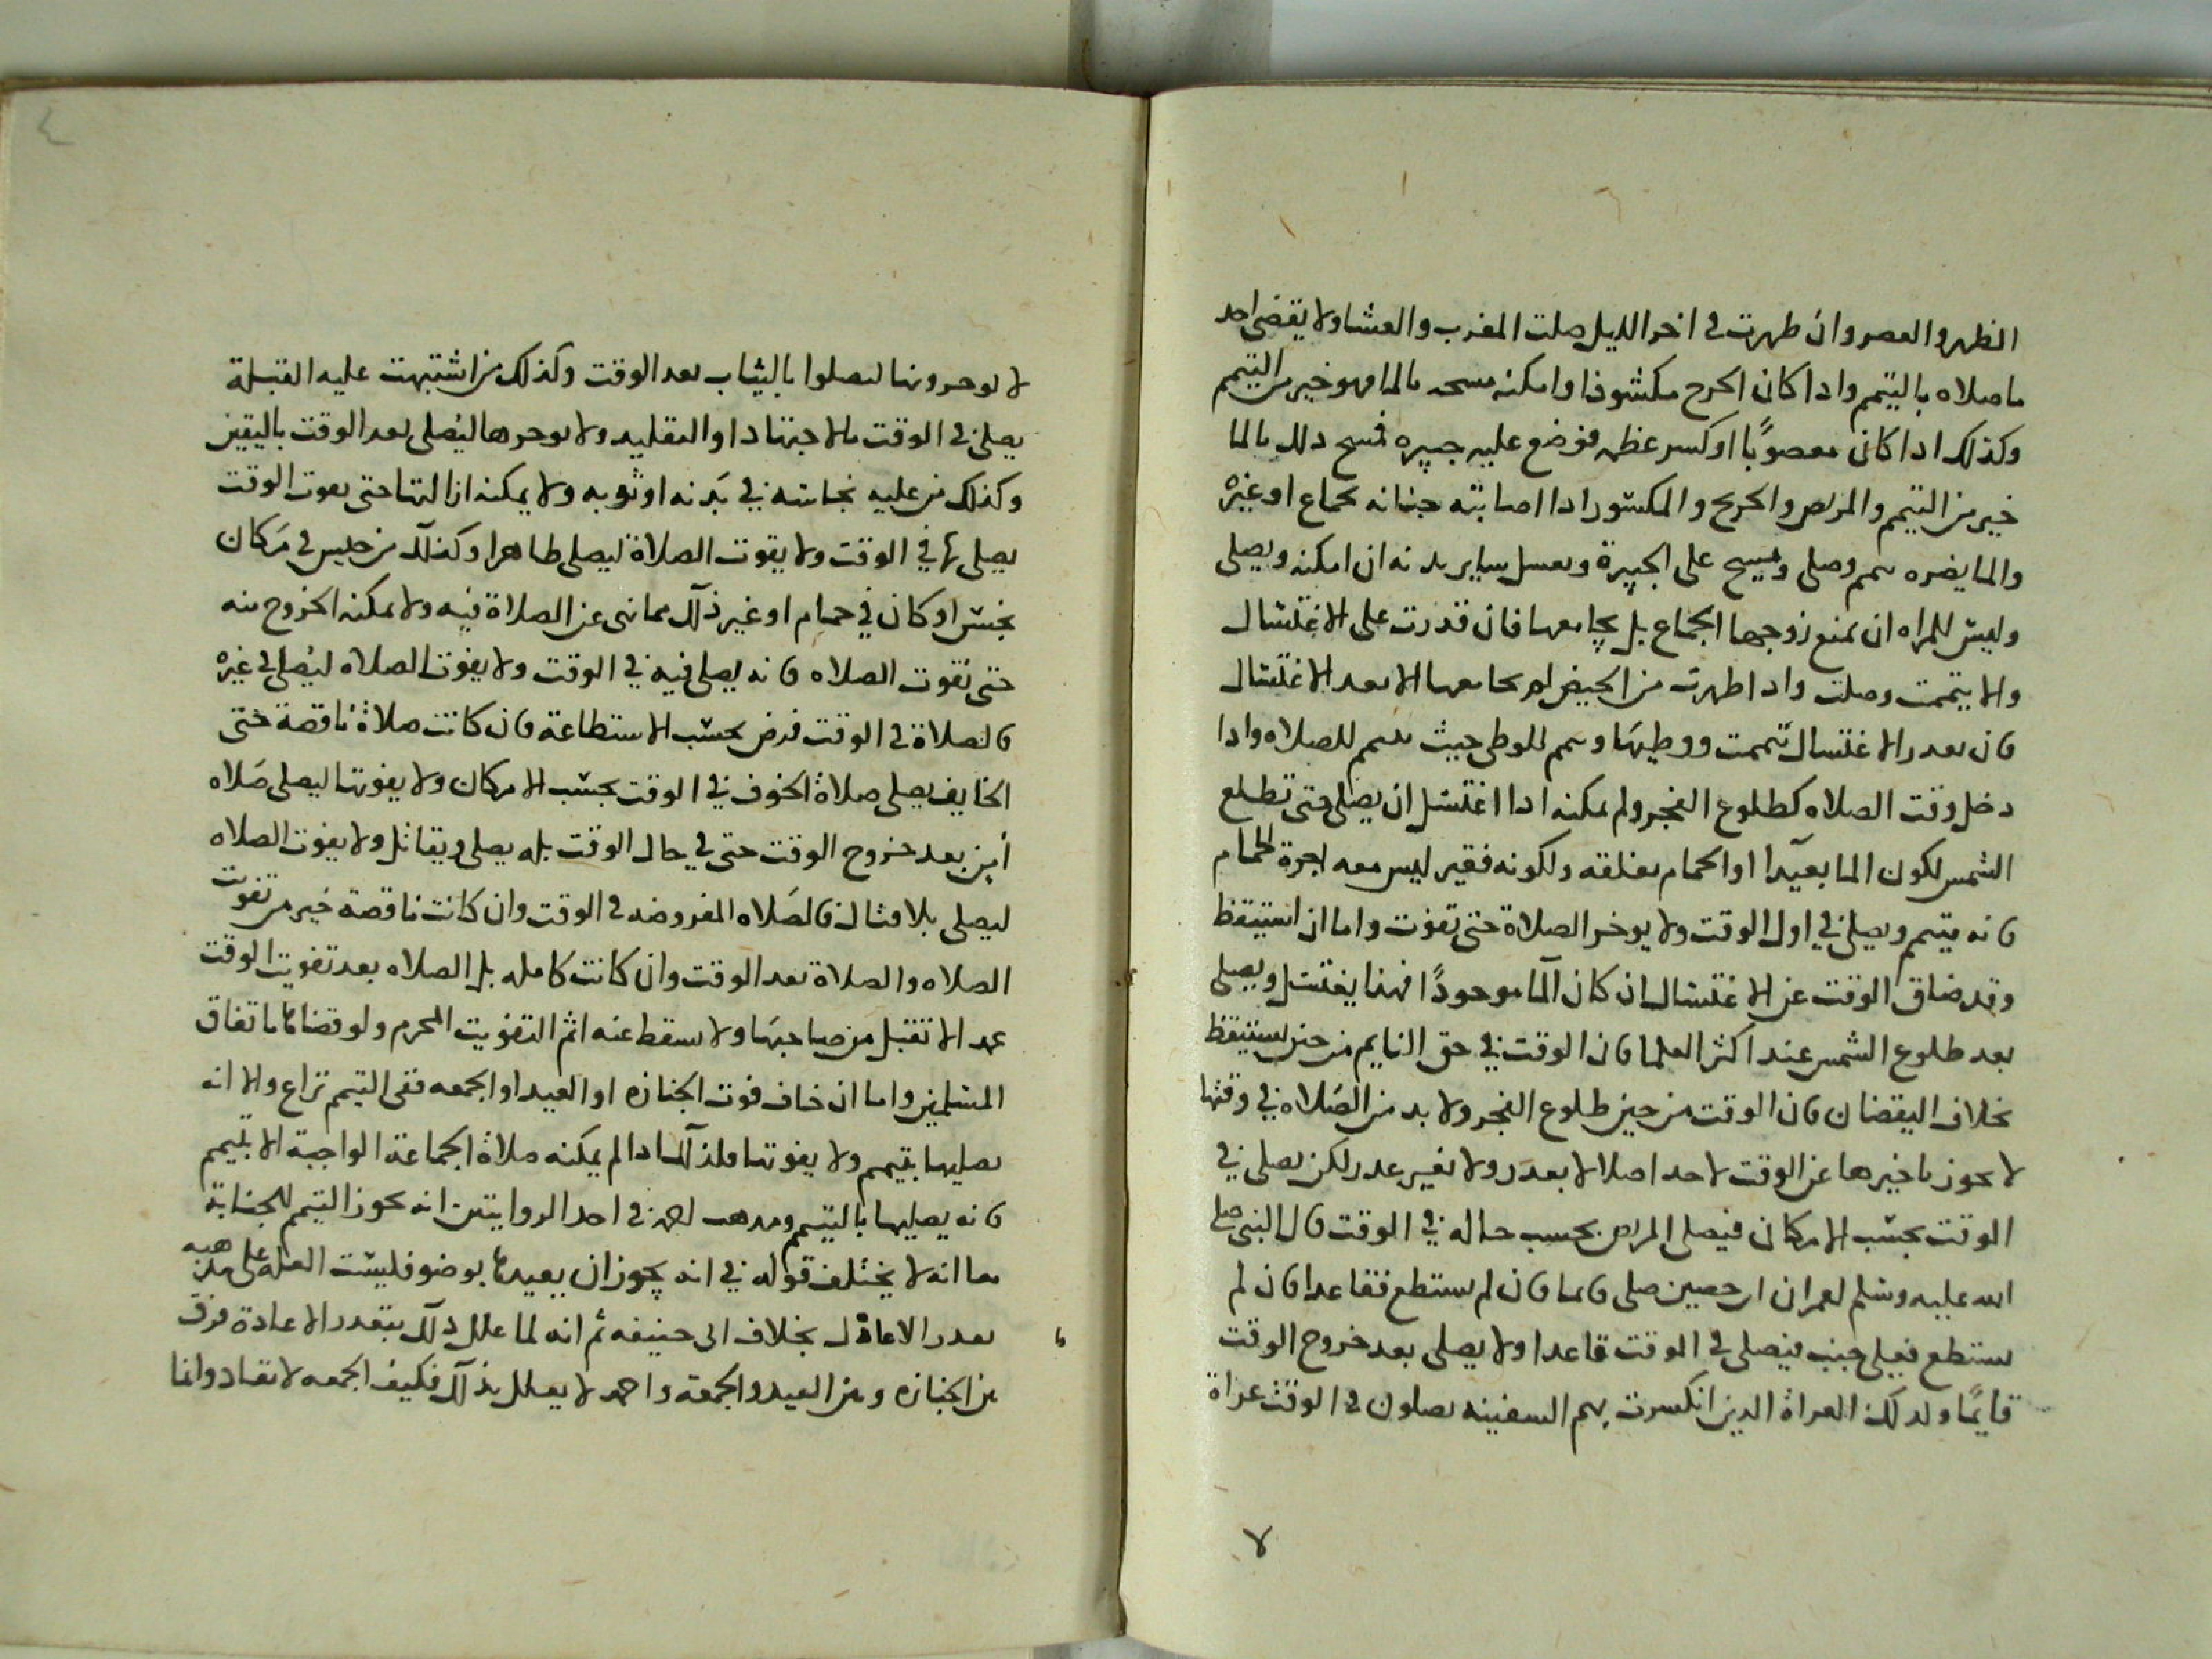 الظهر والعصر وان طهرت في اخر الليل صلت المغرب والعشا ولا يقضى احد
ما صلاه بالتيمم واذا كان الجرح مكشوفا وامكنه مسحه بالما فهو خير من التيمم
وكذلك اذا كان معصوبًا او كسر عظمه فوضع عليه جبيره فمسح ذلك بالما
خير من التيمم والمريض والجريح والمكسور اذا اصابته جنابه بجماع او غيره
والما يضره تيمم وصلى ومسح على الجبيرة ويغسل ساير بدنه ان امكنه ويصلى
وليس للمراه ان تمنع زوجها الجماع بل يجامعها فان قدرت على الاغتسال
والا تيممت وصلت واذا طهرت من الحيض لم يجامعها الا بعد الاغتسال
فان تعذر الاغتسال تيممت ووطيها وتيمم للوطى حيث تتيمم للصلاه واذا
دخل وقت الصلاه كطلوع الفجر ولم يمكنه اذا اغتسل ان يصلى حتى تطلع
الشمس لكون الما بعيدا او الحمام مغلقه ولكونه فقير ليس معه اجرة الحمام
فانه يتيمم ويصلى في اول الوقت ولا يوخر الصلاة حتى تفوت واما ان استيقظ
وقد ضاق الوقت عن الاغتسال ان كان الما موجودًا فهذا يغتسل ويصلى
بعد طلوع الشمس عند اكثر العلما فان الوقت في حق النايم من حين يستيقظ
بخلاف اليقضان فان الوقت من حين طلوع الفجر ولا بد من الصلاه في وقتها
لا يجوز تاخيرها عن الوقت لاحد اصلا لا بعذر ولا بغير عذر لكن يصلى في
الوقت بحسب الامكان فيصلى المريض بحسب حاله في الوقت قال النبي صلى
الله عليه وسلم لعمران ابن حصين صلى قايما فان لم يستطع فقاعدا فان لم
يستطع فعلى جنب فيصلى في الوقت قاعدا ولا يصلى بعد خروج الوقت
قايمًا وكذلك العراة الذين انكسرت بهم السفينه يصلون في الوقت عراة
لا يوخرونها ليصلوا بالثياب بعد الوقت وكذلك من اشتبهت عليه القبلة
يصلى في الوقت بالاجتهاد او التقليد ولا يوخرها ليصلى بعد الوقت باليقين
وكذلك من عليه نجاسه في بدنه او ثوبه ولا يمكنه ازالتها حتى يفوت الوقت
يصلى بها في الوقت ولا يفوت الصلاة ليصلى طاهرا وكذلك من حبس في مكان
نجس او كان في حمام او غير ذلك مما نهى عن الصلاة فيه ولا يمكنه الخروج منه
حتى تفوت الصلاه فانه يصلى فيه في الوقت ولا يفوت الصلاه ليصلى في غيره
فالصلاة في الوقت فرض بحسب الاستطاعة فان كانت صلاة ناقصة حتى
الخايف يصلى صلاة الخوف في الوقت بحسب الامكان ولا يفوتها ليصلى صلاه
أمن بعد خروج الوقت حتى في حال الوقت بل يصلى ويقاتل ولا يفوت الصلاه
ليصلى بلا قتال فالصلاه المفروضه في الوقت وان كانت ناقصة خير من تفوت
الصلاه والصلاة بعد الوقت وان كانت كامله بل الصلاه بعد تفويت الوقت
عمدا لا تقبل من صاحبها ولا يسقط عنه اثم التفويت المحرم ولو قضاها باتفاق
المسلمين واما ان خاف فوت الجنازه او العيد او الجمعه ففى التيمم نزاع والا انه
يصليها بتيمم ولا يفوتها وكذلك اذا لم يمكنه صلاة الجماعة الواجبة الا بتيمم
فانه يصليها بالتيمم ومذهب احمد في احد الروايتين انه يجوز التيمم للجنابة
مع انه لا يختلف قوله في انه يجوز ان يعيدها بوضو فليست العله على مذهبه
تعذر الاعادة بخلاف ابى حنيفه ثم انه لما علل ذلك بتعذر الاعادة فرق
بين الجنازه وبين العيد والجمعة واحمد لا يعلل بذلك فكيف الجمعه لا تعاد وانما